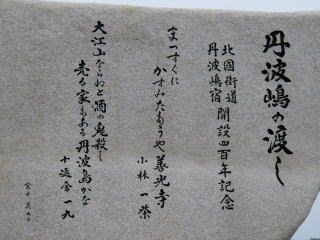 丹波嶋の渡し
北国街道
丹波嶋宿開設四百年記念
まつすぐに
かすみたまうや善光寺
小林一茶
大江山ならねど酒の鬼殺し
売る家もある丹波島かな
十返舎一九